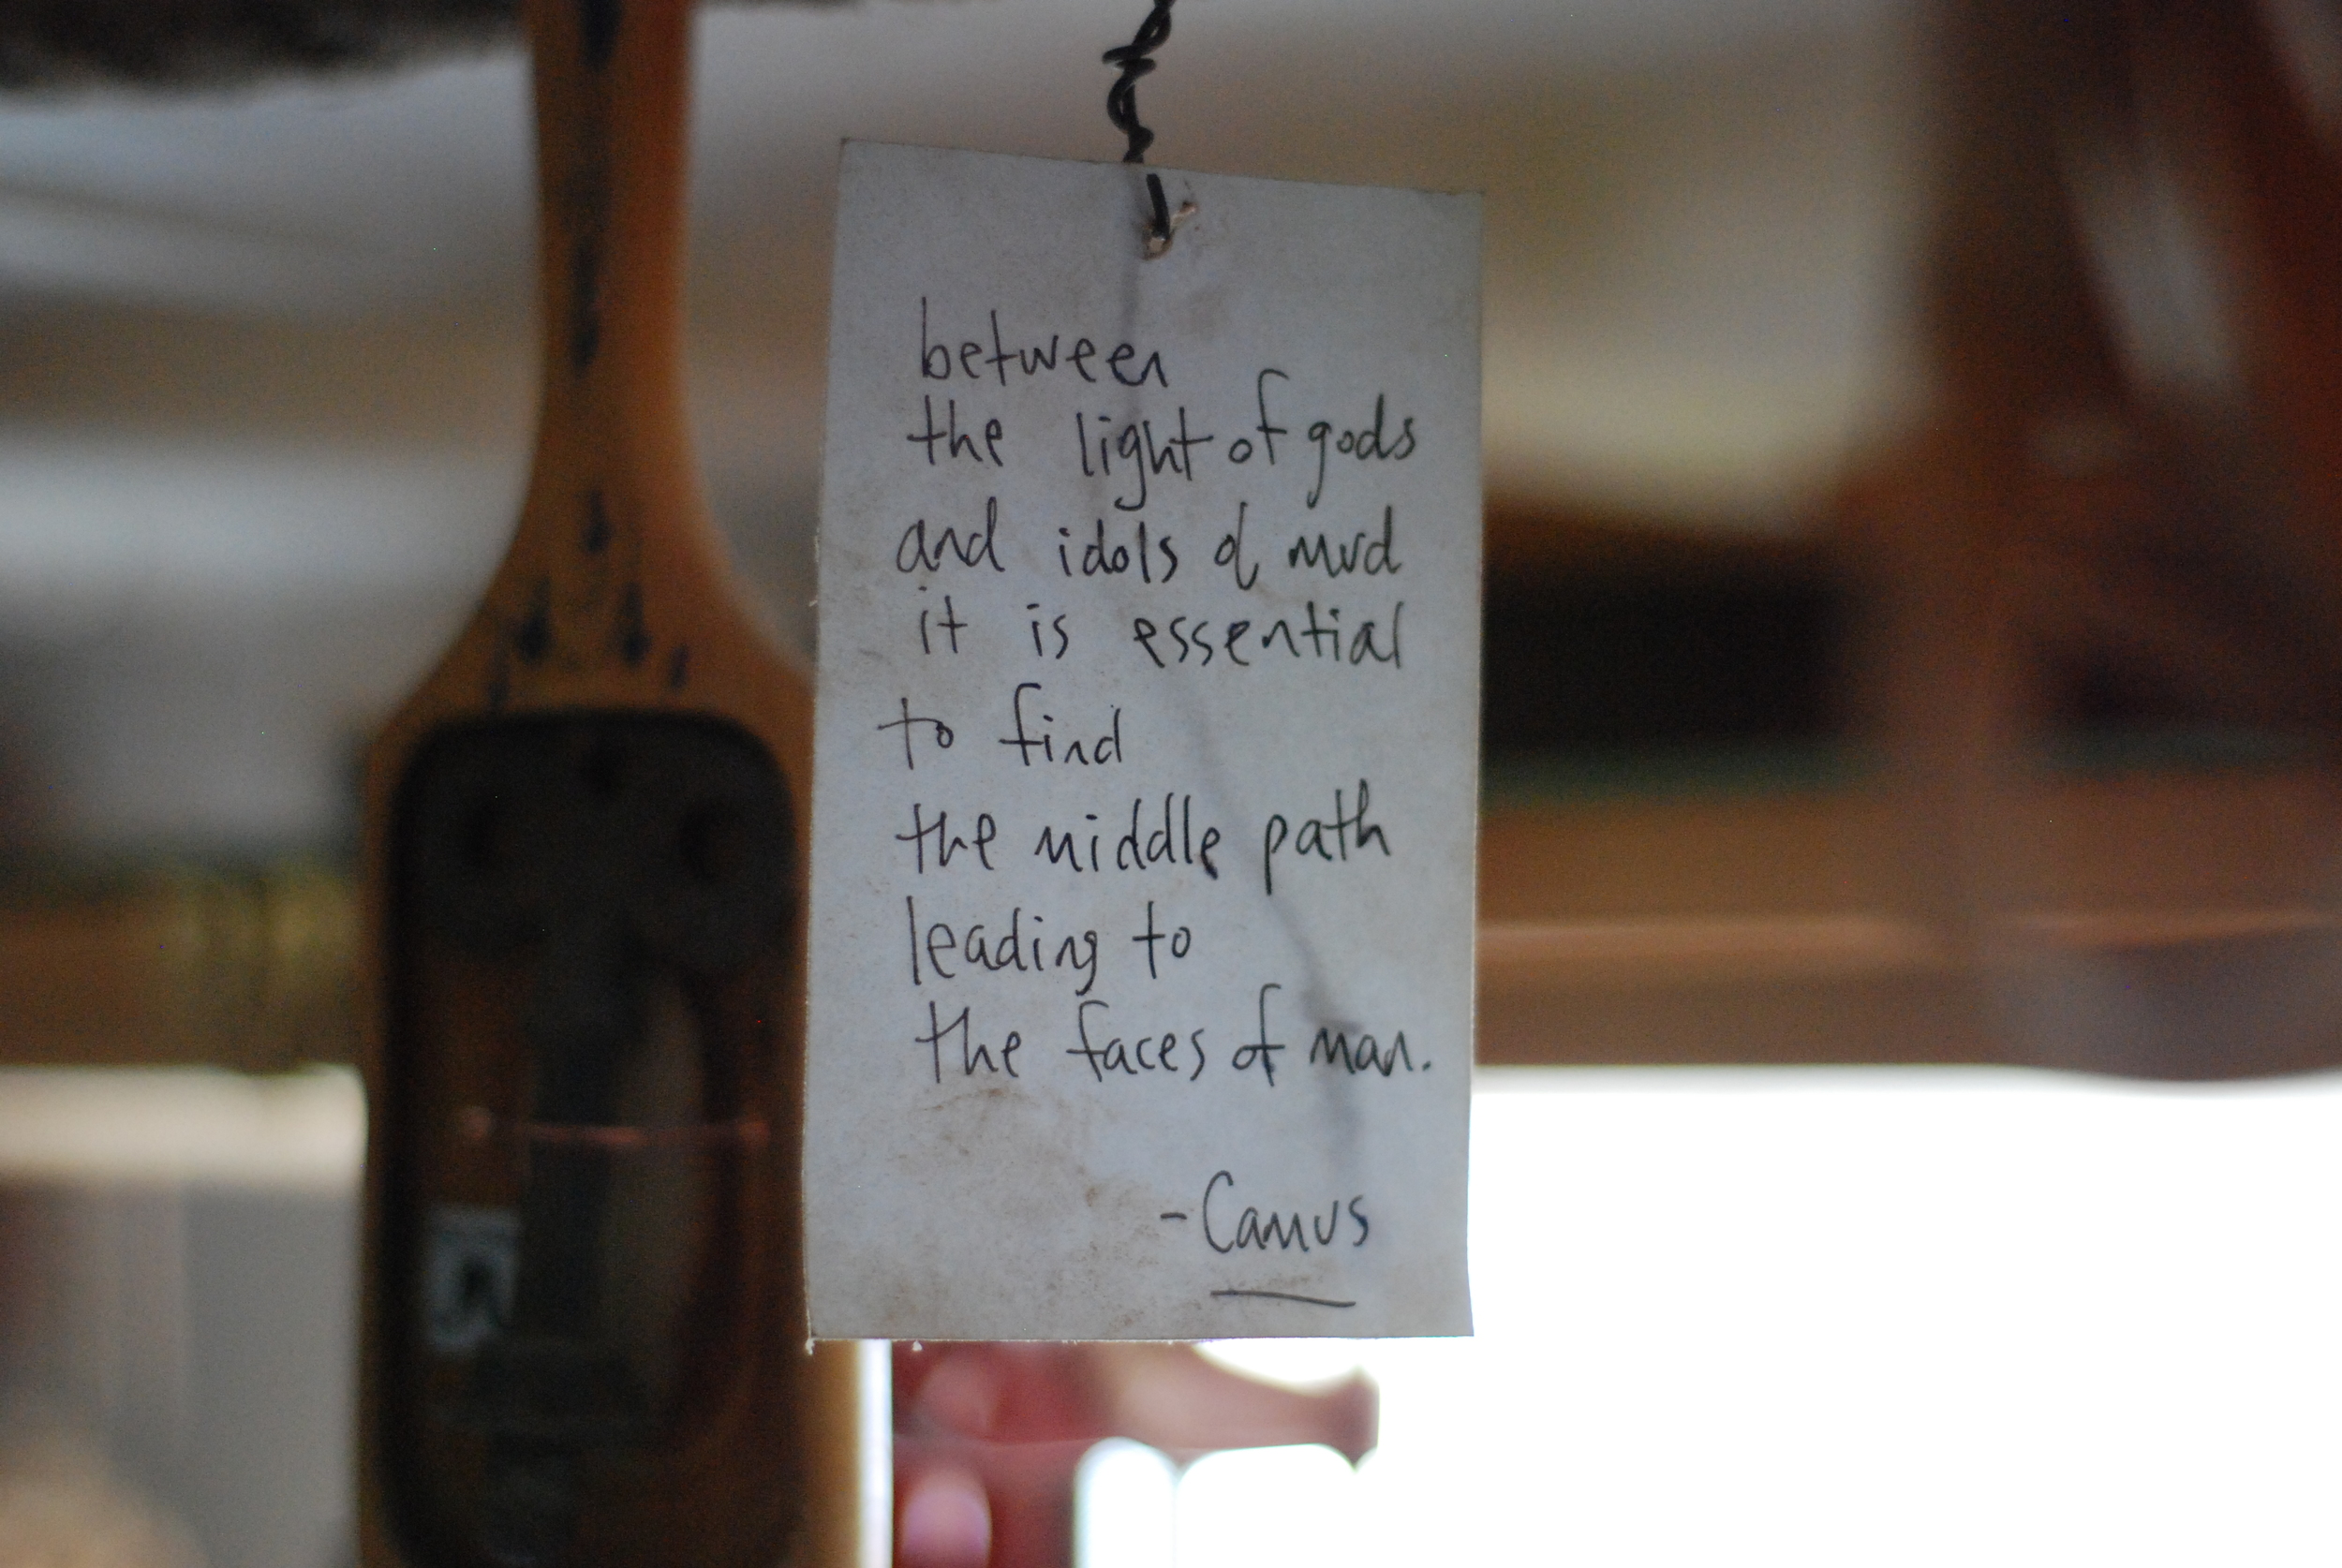 between
the light of gods
and idols of mud
it is essential
to find
the middle path
leading to
the faces of man.
-Camus